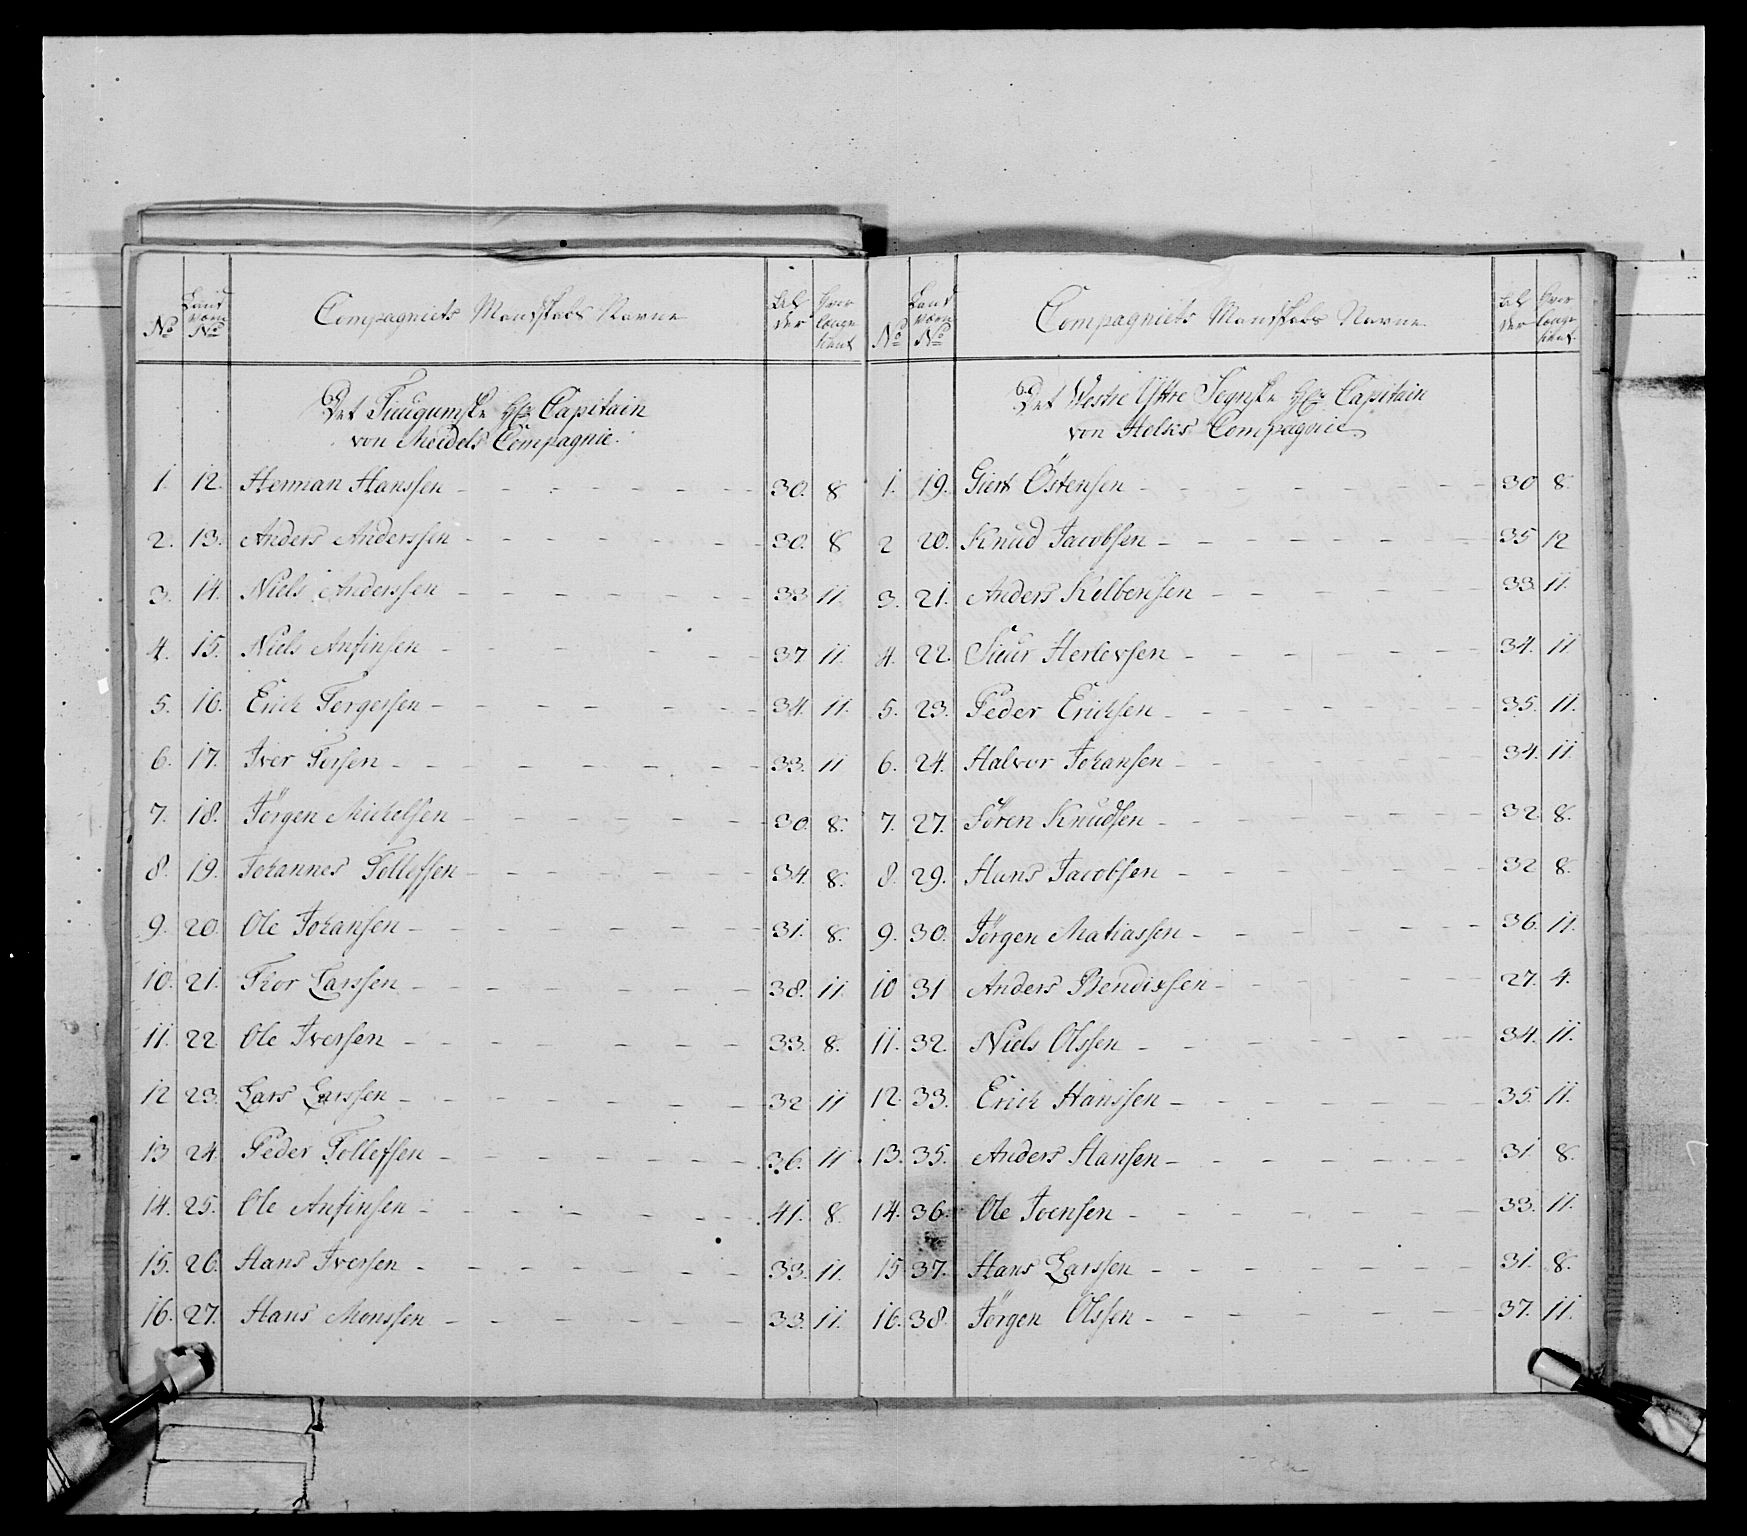 No
Land værn No
Compagniets Mandskabs Navne
Al der
Over længe tient
Det Tiugumske Capitain
von Meidels Compagnie.
1. 12. Herman Hanssen 30. 8
2. 13. Anders Anderssen 30. 8
3. 14. Niels Anderssen 33 11.
4. 15. Niels Anfinsen 37 11.
5. 16. Erich Torgersen 34. 11.
6. 17. Iver Torsen 33. 11
7. 18. Jörgen Michelsen 30. 8.
8. 19. Johannes Tollefsen 34. 8.
9. 20. Ole Johansen 31. 8.
10. 21. Thor Larssen 38. 11.
11. 22. Ole Iversen 33. 8.
12 23. Lars Larssen 32 11
13 24. Peder Tollefsen 36. 11
14. 25. Ole Anfinsen 41. 8.
15. 26. Hans Iversen 33. 11.
16. 27. Hans Monssen 33. 11.
No
Land værn No
Compagniets Mandskabs Navne
Al der
Over længe tient
Det Westre Yttre Sognske Capitain
von Compagnie
1. 19. Giert Östensen 30 8.
2 20. Knud Jacobsen 35 12
3. 21. Anders Kolbensen 33. 11.
4. 22. Siur Herlevsen 34. 11
5. 23. Peder Erichsen 35. 11.
6. 24. Halvor Johansen 34. 11.
7. 27. Sören Knudsen 32. 8.
8. 29. Hans Jacobsen 32 8.
9. 30. Jörgen Matiassen 36. 11.
10 31 Anders Bendixsen 27. 4.
11. 32. Niels Olssen 34. 11.
12. 33. Erich Hanssen 35. 11.
13. 35. Anders Hansen 31. 8.
14. 36. Ole Joensen 33. 11.
15 37. Hans Larssen 31. 8.
16. 38. Jörgen Olssen 37. 11.